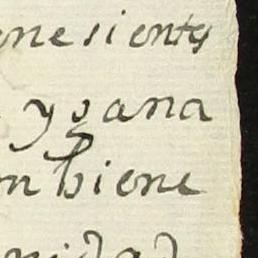 nesientes
y gana
n biene
nidad